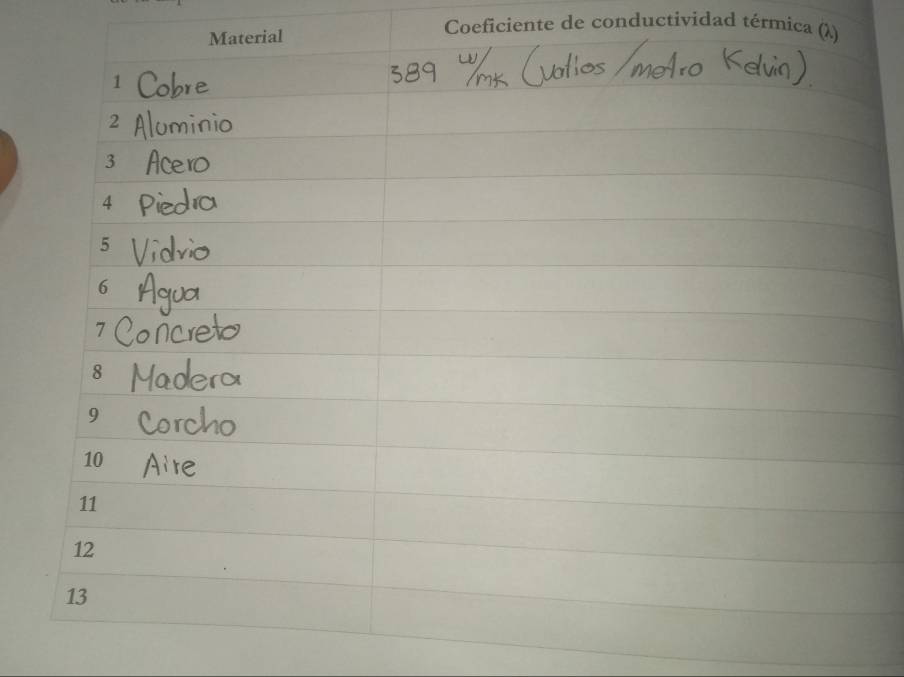 Material Coeficiente de conductividad térmica (λ)
1 Cobre 389 W/mK (vatios/metro Kelvin).
2 Aluminio
3 Acero
4 Piedra
5 Vidrio
6 Agua
7 Concreto
8 Madera
9 Corcho
10 Aire
11
12
13